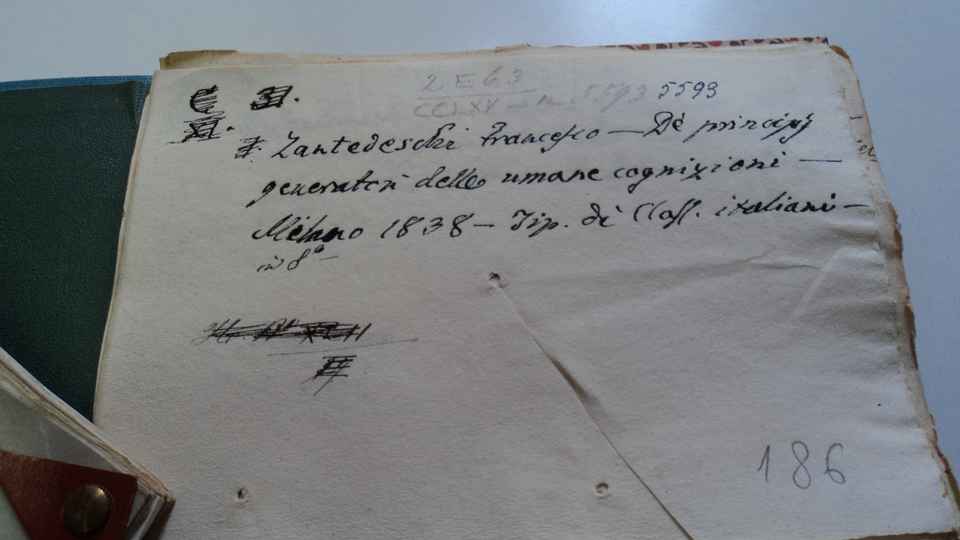 2 E 63
CCLXV — n. 5593 5593
Zantedeschi Francesco — De principj
generatori delle umane cognizioni —
Milano 1838 — Tip. di Class. italiani —
in 8°—
186